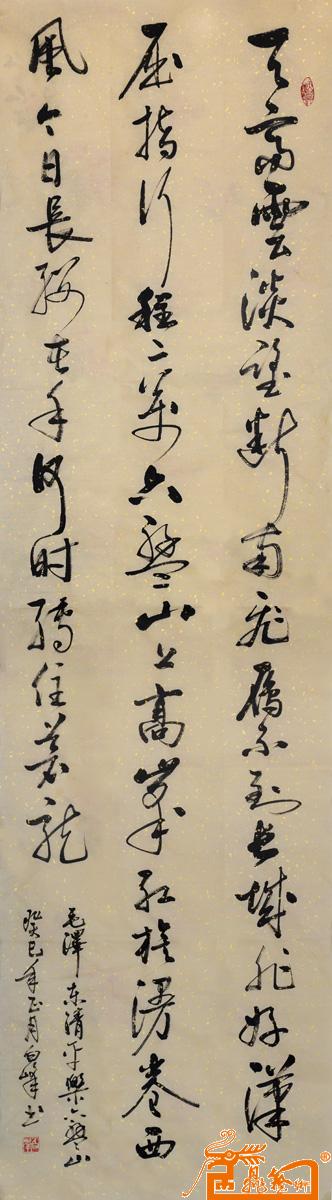 天高雲淡望断南飛鴈不到長城非好漢
屈指行程二萬六盤山上高峯紅旗漫卷西
風今日長纓在手何時縛住蒼龍
毛澤東清平樂六盤山
癸巳年正月白峰书